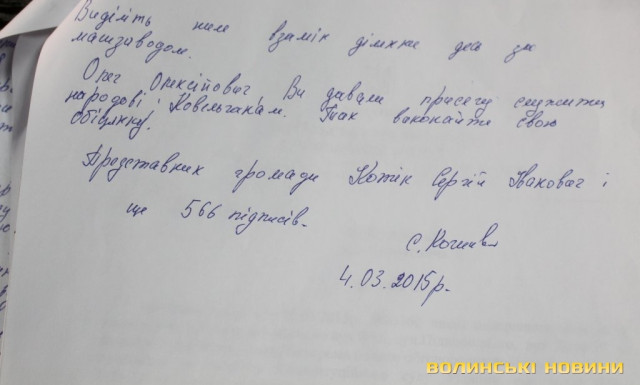 Виділіть нам взамін ділянки десь за
машзаводом.
Олег Олексійович Ви давали присягу служити
народові і Ковельчанам. Так виконайте свою
обіцянку.
Представник громади Сергій Іванович і
ще 566 підписів.
С.
4.03.2015р.
ВОЛИНСЬКІ НОВИНИ